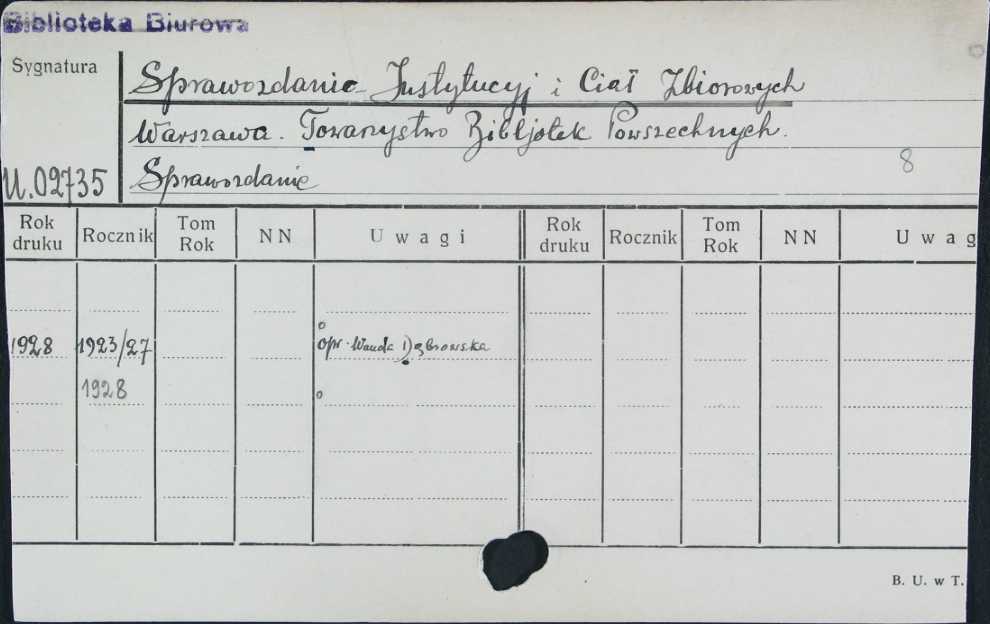 Biblioteka Biurowa
Sygnatura
Sprawozdanie Instytucyj i Ciał Zbiorowych
Warszawa. Towarzystwo Bibljotek Powszechnych.
8
U.02735
Sprawozdanie
Rok druku Rocznik Tom Rok NN Uwagi Rok druku Rocznik Tom Rok NN Uwag
1928 1923/27 opr. Wanda Dąbrowska
1928
B. U. w T.